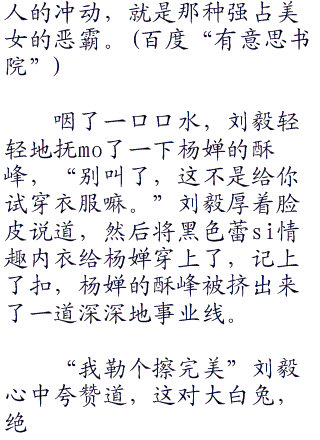 人的冲动，就是那种强占美
女的恶霸。(百度“有意思书
院”)
咽了一口口水，刘毅轻
轻地抚mo了一下杨婵的酥
峰，“别叫了，这不是给你
试穿衣服嘛。”刘毅厚着脸
皮说道，然后将黑色蕾si情
趣内衣给杨婵穿上了，记上
了扣，杨婵的酥峰被挤出来
了一道深深地事业线。
“我勒个擦完美”刘毅
心中夸赞道，这对大白兔，
绝